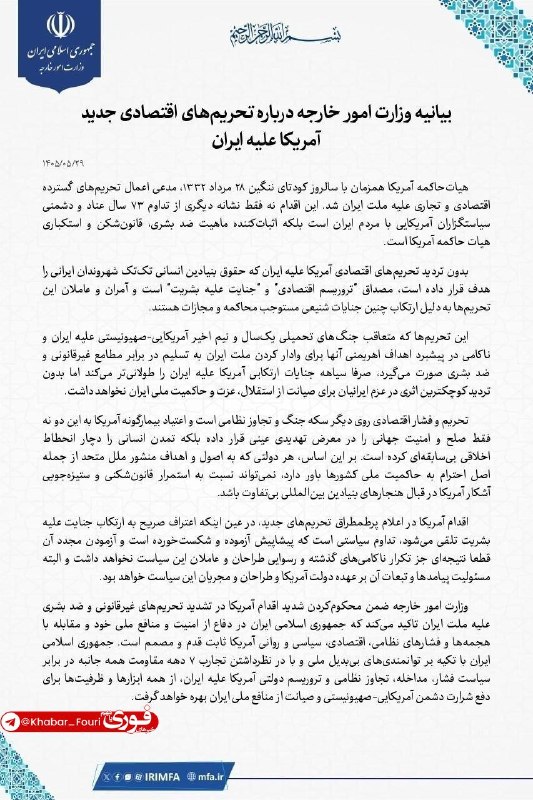 جمهوری اسلامی ایران
وزارت امور خارجه
بسم الله الرحمن الرحیم
بیانیه وزارت امور خارجه درباره تحریم‌های اقتصادی جدید
آمریکا علیه ایران
۱۴۰۵/۰۵/۲۹
هیات‌حاکمه آمریکا همزمان با سالروز کودتای ننگین ۲۸ مرداد ۱۳۳۲، مدعی اعمال تحریم‌های گسترده
اقتصادی و تجاری علیه ملت ایران شد. این اقدام نه فقط نشانه دیگری از تداوم ۷۳ سال عناد و دشمنی
سیاستگزاران آمریکایی با مردم ایران است بلکه اثبات‌کننده ماهیت ضد بشری، قانون‌شکن و استکباری
هیات حاکمه آمریکا است.
بدون تردید تحریم‌های اقتصادی آمریکا علیه ایران که حقوق بنیادین انسانی تک‌تک شهروندان ایرانی را
هدف قرار داده است، مصداق "تروریسم اقتصادی" و "جنایت علیه بشریت" است و آمران و عاملان این
تحریم‌ها به دلیل ارتکاب چنین جنایات شنیعی مستوجب محاکمه و مجازات هستند.
این تحریم‌ها که متعاقب جنگ‌های تحمیلی یک‌سال و نیم اخیر آمریکایی-صهیونیستی علیه ایران و
ناکامی در پیشبرد اهداف اهریمنی آنها برای وادار کردن ملت ایران به تسلیم در برابر مطامع غیرقانونی و
ضد بشری صورت می‌گیرد، صرفا سیاهه جنایات ارتکابی آمریکا علیه ایران را طولانی‌تر می‌کند اما بدون
تردید کوچکترین اثری در عزم ایرانیان برای صیانت از استقلال، عزت و حاکمیت ملی ایران نخواهد داشت.
تحریم و فشار اقتصادی روی دیگر سکه جنگ و تجاوز نظامی است و اعتیاد بیمارگونه آمریکا به این دو نه
فقط صلح و امنیت جهانی را در معرض تهدیدی عینی قرار داده بلکه تمدن انسانی را دچار انحطاط
اخلاقی بی‌سابقه‌ای کرده است. بر این اساس، هر دولتی که به اصول و اهداف منشور ملل متحد از جمله
اصل احترام به حاکمیت ملی کشورها باور دارد، نمی‌تواند نسبت به استمرار قانون‌شکنی و ستیزه‌جویی
آشکار آمریکا در قبال هنجارهای بنیادین بین‌المللی بی‌تفاوت باشد.
اقدام آمریکا در اعلام پرطمطراق تحریم‌های جدید، در عین اینکه اعتراف صریح به ارتکاب جنایت علیه
بشریت تلقی می‌شود، تداوم سیاستی است که پیشاپیش آزموده و شکست‌خورده است و آزمودن مجدد آن
قطعا نتیجه‌ای جز تکرار ناکامی‌های گذشته و رسوایی طراحان و عاملان این سیاست نخواهد داشت و البته
مسئولیت پیامدها و تبعات آن بر عهده دولت آمریکا و طراحان و مجریان این سیاست خواهد بود.
وزارت امور خارجه ضمن محکوم‌کردن شدید اقدام آمریکا در تشدید تحریم‌های غیرقانونی و ضد بشری
علیه ملت ایران تاکید می‌کند که جمهوری اسلامی ایران در دفاع از امنیت و منافع ملی خود و مقابله با
هجمه‌ها و فشارهای نظامی، اقتصادی، سیاسی و روانی آمریکا ثابت قدم و مصمم است. جمهوری اسلامی
ایران با تکیه بر توانمندی‌های بی‌بدیل ملی و با در نظرداشتن تجارب ۷ دهه مقاومت همه جانبه در برابر
سیاست فشار، مداخله، تجاوز نظامی و تروریسم دولتی آمریکا علیه ایران، از همه ابزارها و ظرفیت‌ها برای
دفع شرارت دشمن آمریکایی-صهیونیستی و صیانت از منافع ملی ایران بهره خواهد گرفت.
@Khabar_Fouri
فوری
IRIMFA
mfa.ir